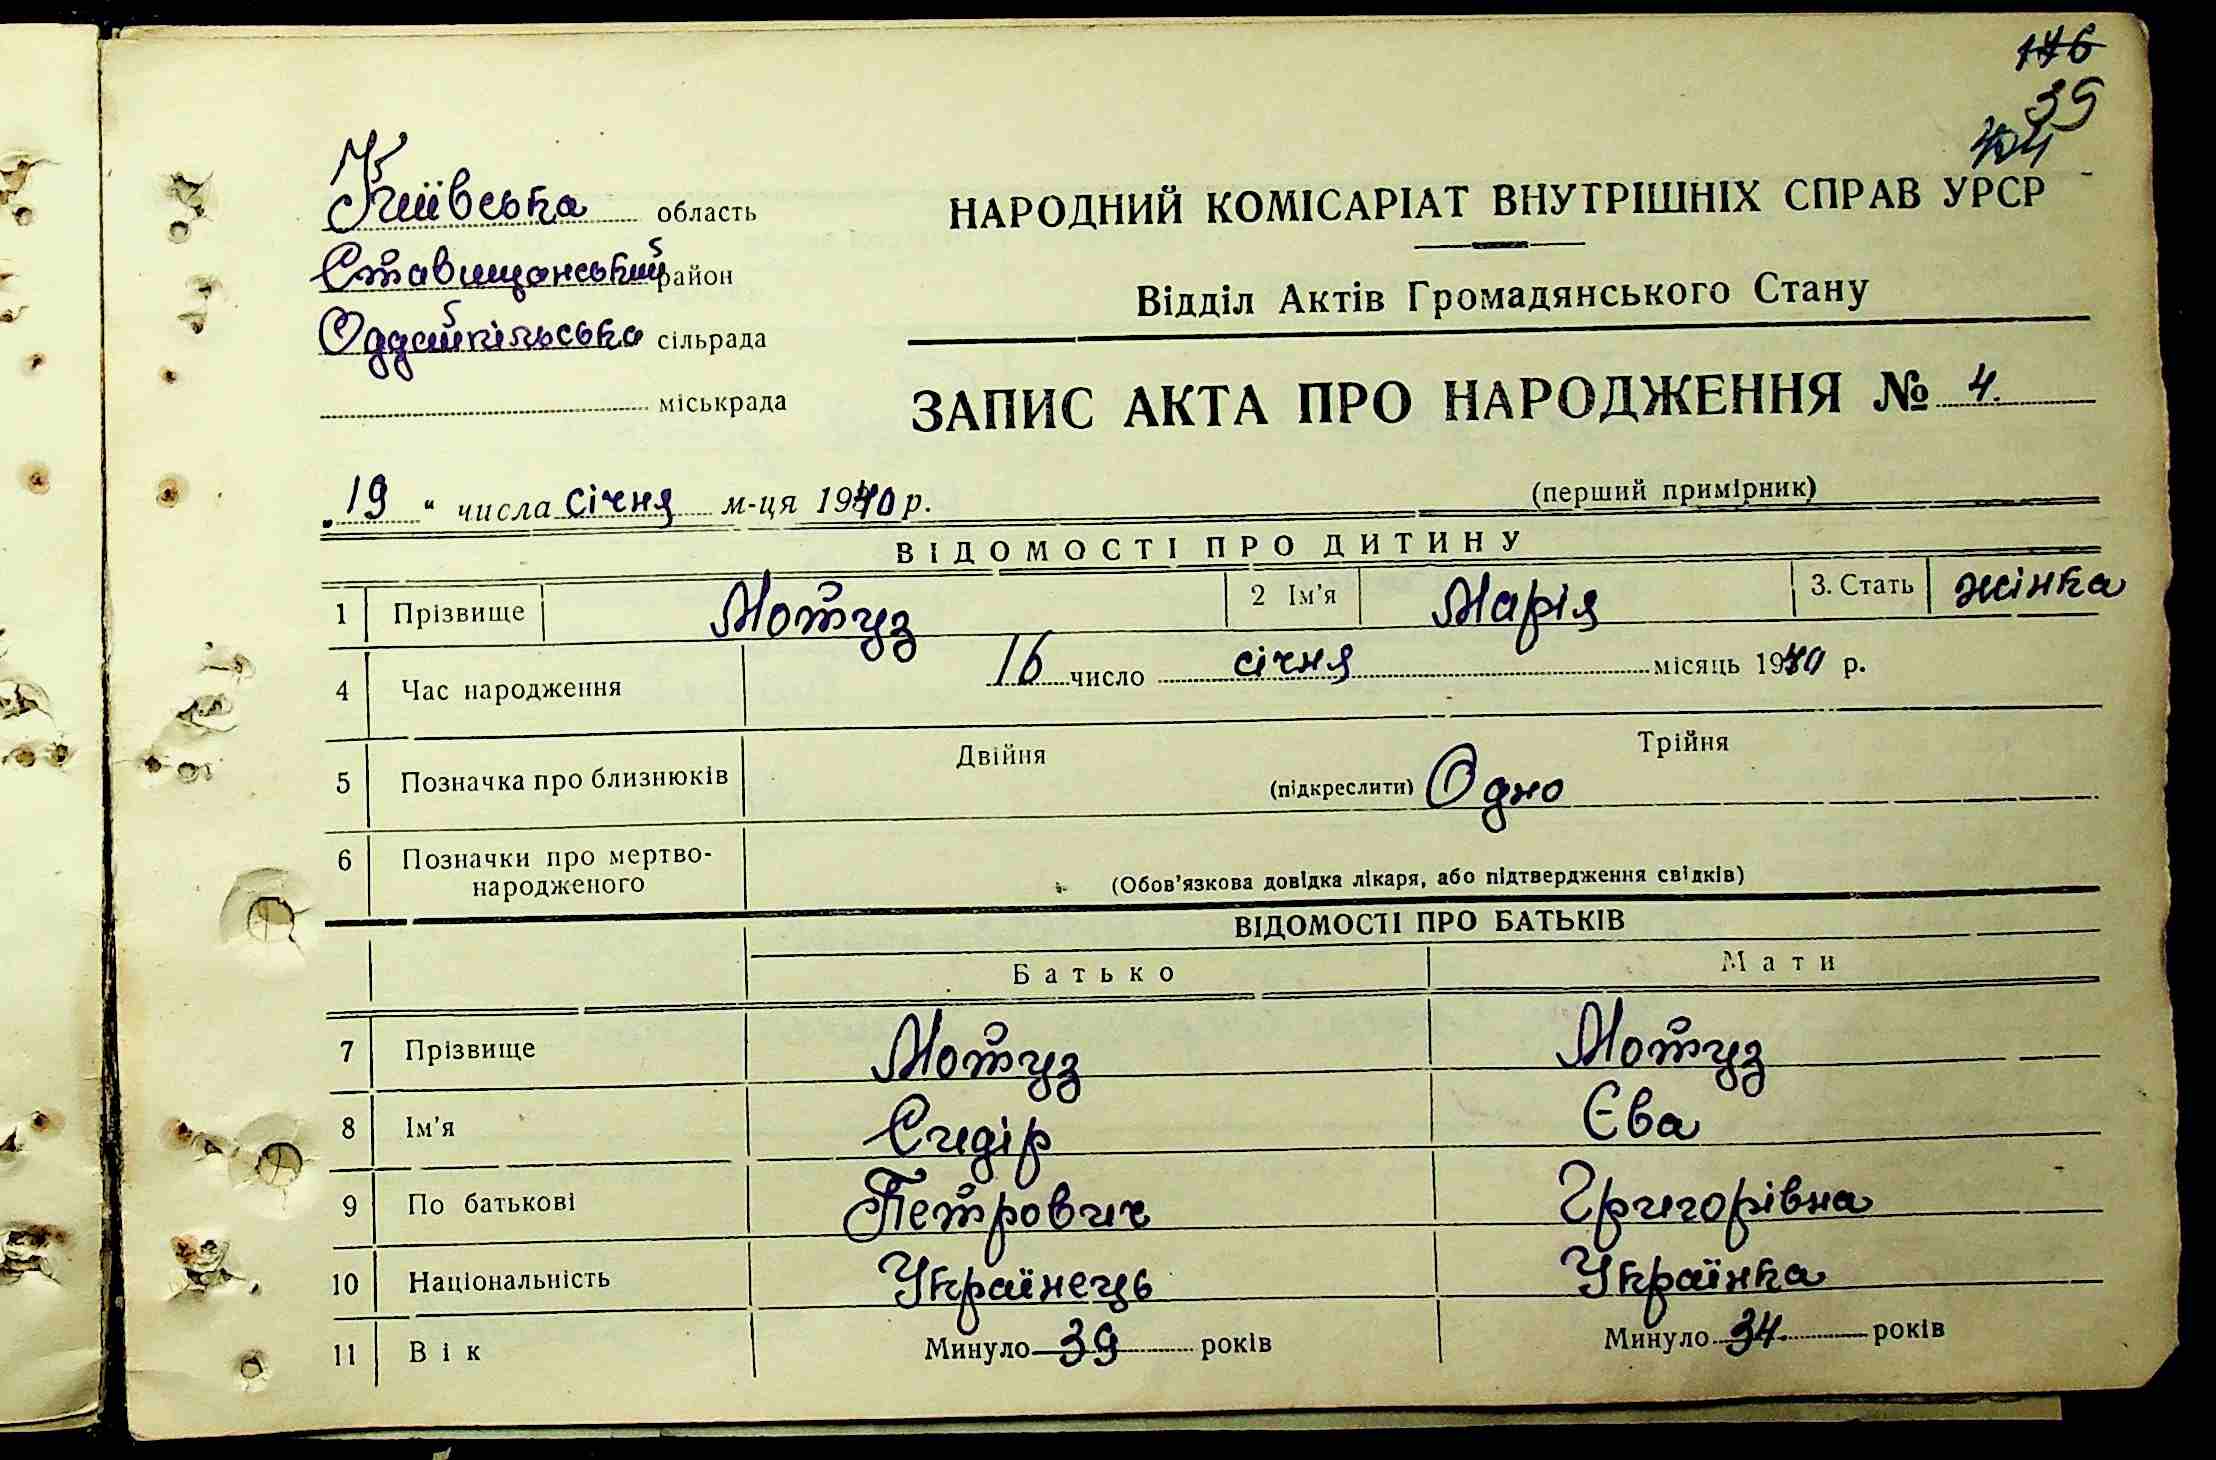 146
39
Київська область
НАРОДНИЙ КОМІСАРІАТ ВНУТРІШНІХ СПРАВ УРСР
Ставищанський район
Відділ Актів Громадянського Стану
Оддайпільська сільрада
міськрада
ЗАПИС АКТА ПРО НАРОДЖЕННЯ № 4.
„19“ числа січня м-ця 1940 р.
(перший примірник)
ВІДОМОСТІ ПРО ДИТИНУ
1 Прізвище Мотуз 2 Ім'я Марія 3. Стать жінка
4 Час народження 16 число січня місяць 1940 р.
5 Позначка про близнюків Двійня (підкреслити) Одно Трійня
6 Позначки про мертво-
народженого
(Обов'язкова довідка лікаря, або підтвердження свідків)
ВІДОМОСТІ ПРО БАТЬКІВ
Батько Мати
7 Прізвище Мотуз Мотуз
8 Ім'я Сидір Єва
9 По батькові Петрович Григорівна
10 Національність Українець Українка
11 Вік Минуло 39 років Минуло 34 років